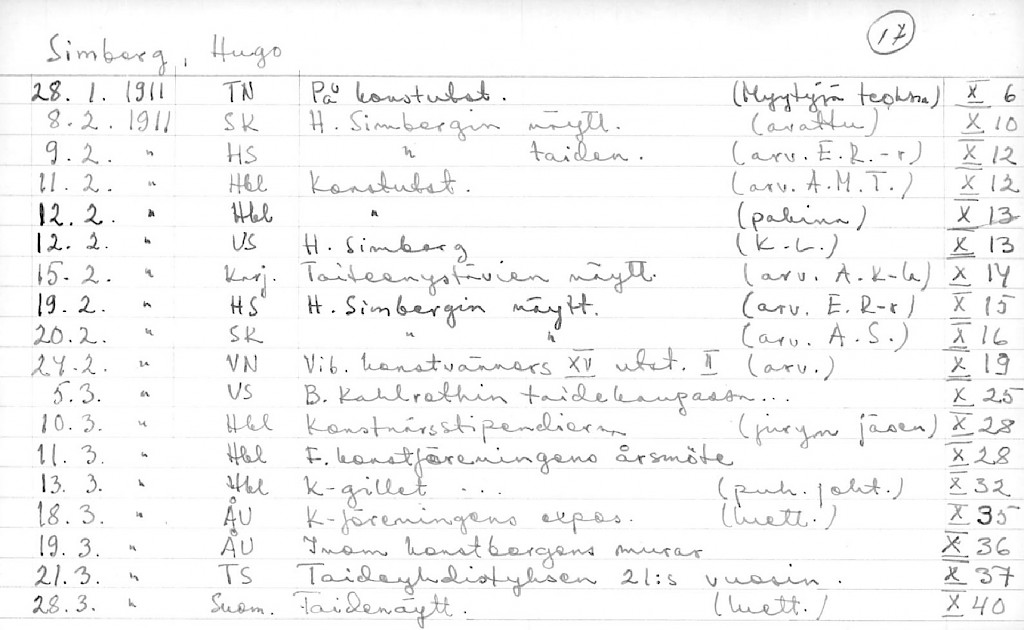 17
Simberg, Hugo
28. 1. 1911 TN På konstutst. (Myytyjä teoksia) X 6
8. 2. 1911 SK H. Simbergin näytt. (avattu) X 10
9. 2. " HS " taiden. (arv. E.R.-r) X 12
11. 2. " Hbl Konstutst. (arv. A.M.T.) X 12
12. 2. " Hbl " (pakina) X 13
12. 2. " US H. Simberg (K-L.) X 13
15. 2. " Karj. Taiteenystävien näytt. (arv. A.K-la) X 14
19. 2. " HS H. Simbergin näytt. (arv. E.R-r) X 15
20. 2. " SK " " (arv. A.S.) X 16
24. 2. " VN Vib. konstvänners XV utst. II (arv.) X 19
5. 3. " US B. Kahlrothin taidekaupassa... X 25
10. 3. " Hbl Konstnärsstipendierna (juryn jäsen) X 28
11. 3. " Hbl F. konstföreningens årsmöte X 28
13. 3. " Hbl K-gillet ... (puh. joht.) X 32
18. 3. " ÅU K-föreningens expos. (luett.) X 35
19. 3. " ÅU Inom konstborgens murar X 36
21. 3. " TS Taideyhdistyksen 21:s vuosin. X 37
28. 3. " Suom. Taidenäytt. (luett.) X 40